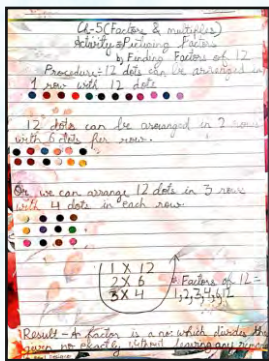 Ch-5 (Factors & multiples)
Activity = Pictuing Factors
b) Finding Factors of 12
Procedure:- 12 dots can be arranged in
1 row with 12 dots
12 dots can be arranged in 2 rows
with 6 dots per row.
Or, we can arrange 12 dots in 3 rows
with 4 dots in each row.
1 X 12
2 X 6
3 X 4
Factors of 12 =
1,2,3,4,6,12
Result - A factor is a no. which divides the
given no exactly without leaving any